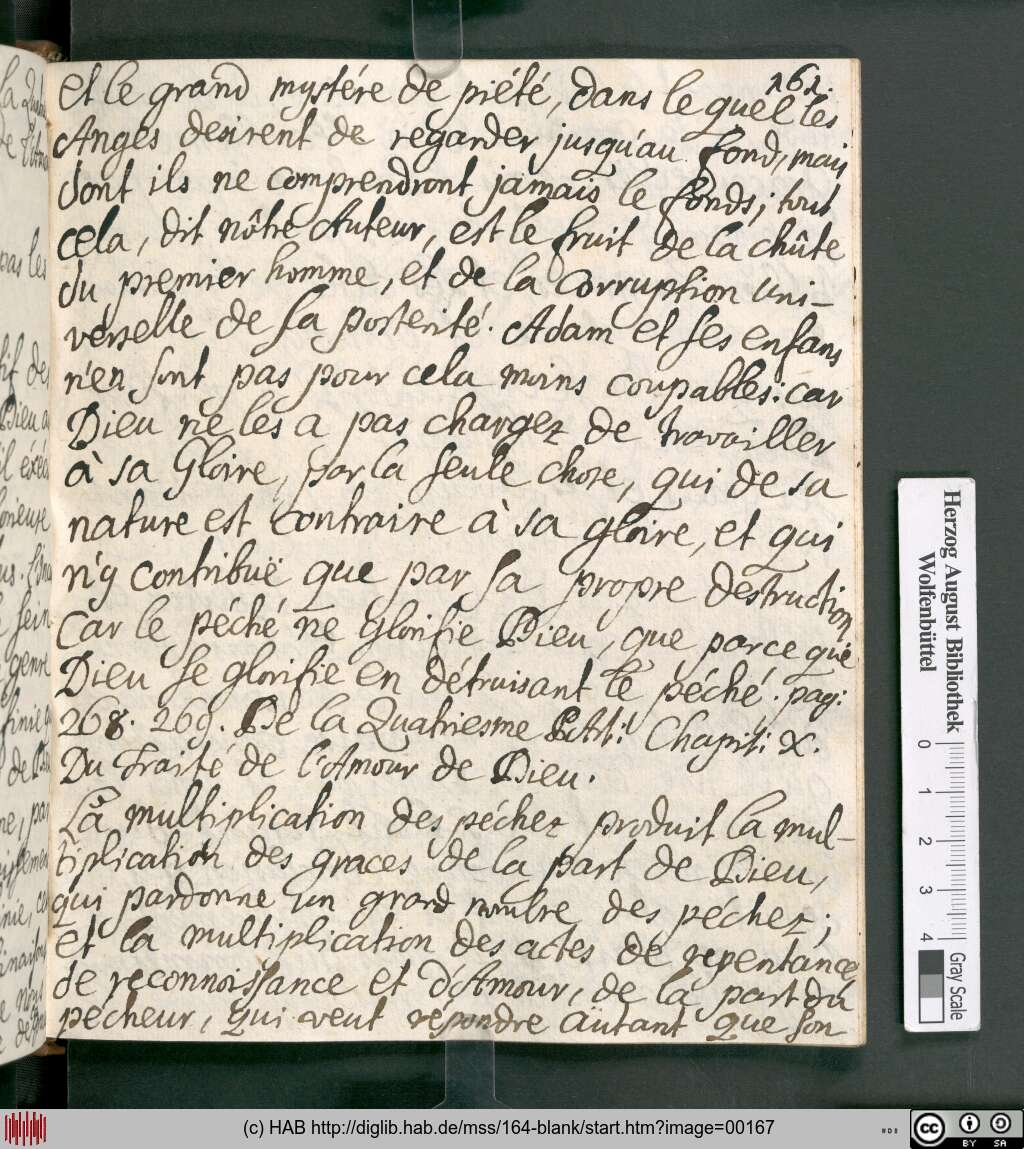 161.
et le grand mystére de piété, dans le quel les
Anges desirent de regarder jusqu'au fond, mais
dont ils ne comprendront jamais le fonds; tout
cela, dit nôtre Auteur, est le fruit de la chûte
du premier homme, et de la Corruption uni-
verselle de sa posterité. Adam et ses enfans
n'en sont pas pour cela moins coupables: car
Dieu ne les a pas chargez de travailler
à sa Gloire, par la seule chose, qui de sa
nature est contraire à sa gloire, et qui
n'y contribuë que par sa propre destruction
Car le péché ne glorifie Dieu, que parce que
Dieu se glorifie en détruisant le péché. pag:
268. 269. De la Quatriesme Part: Chapit: X.
Du Traité de l'Amour de Dieu.
La multiplication des péchez produit la mul-
tiplication des graces de la part de Dieu,
qui pardonne un grand nombre des péchez;
et la multiplication des actes de repentance
de reconnoissance et d'Amour, de la part du
pécheur, qui veut repondre autant que son
Herzog August Bibliothek
Wolfenbüttel
0 1 2 3 4
Gray Scale
(c) HAB http://diglib.hab.de/mss/164-blank/start.htm?image=00167
cc BY SA